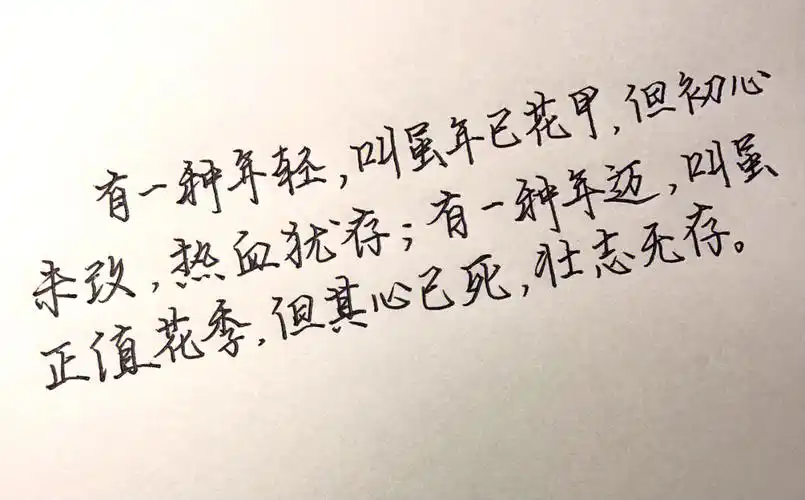 有一种年轻，叫虽年已花甲，但初心
未改，热血犹存；有一种年迈，叫虽
正值花季，但其心已死，壮志无存。